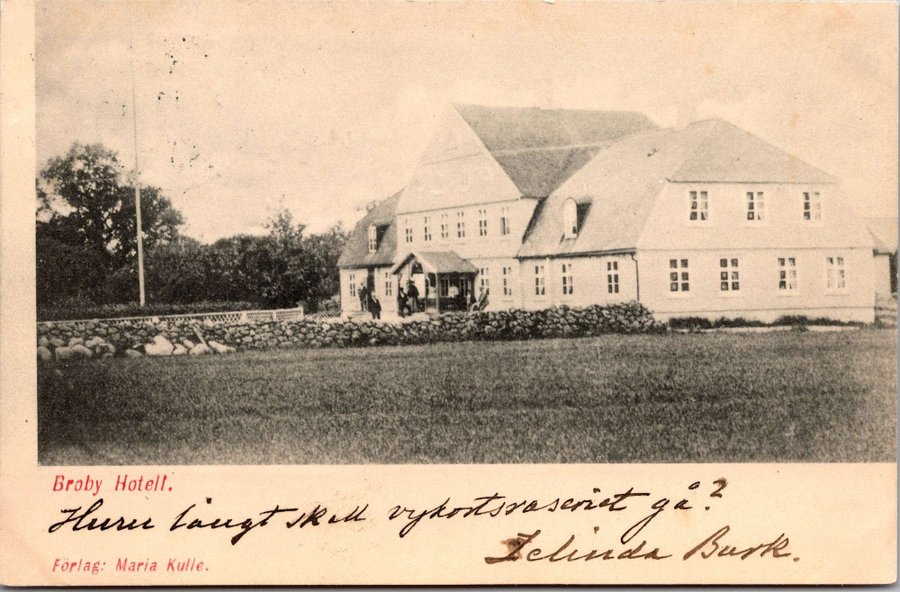 Broby Hotell.
Huru långt skall vykortsraseriet gå?
Zelinda Bark.
Förlag: Maria Kulle.